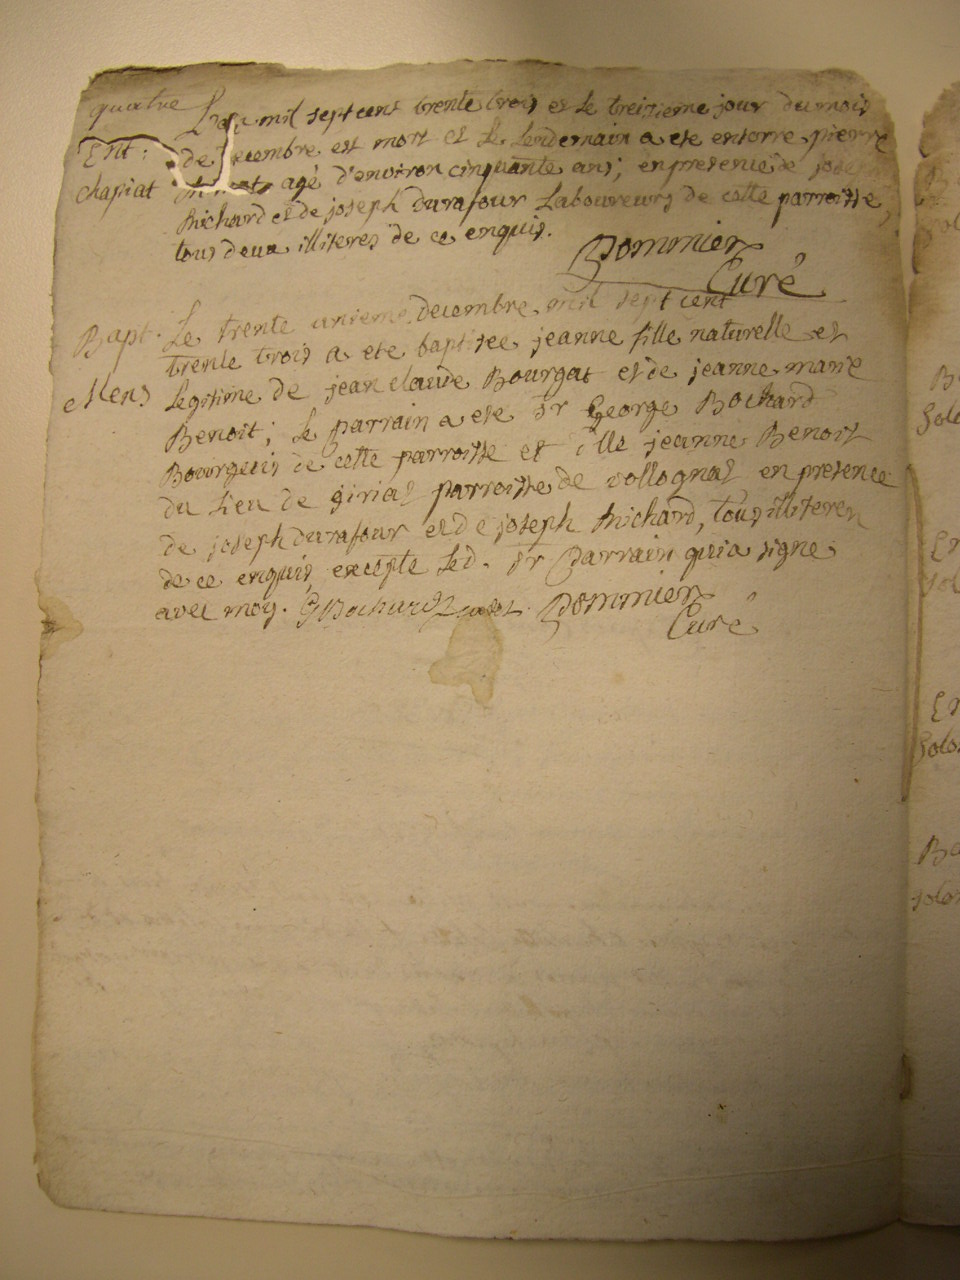 quatre
L'an mil sept cent trente trois et le treizieme jour du mois
Ent:
de decembre est mort et le lendemain a ete enterre pierre
chapiat
agé d'environ cinquante ans; en presence de joseph
Michard et de joseph durafour Laboureurs de cette parroisse,
tous deux illiteres de ce enquis.
Dommier
Curé
Bapt.
Le trente unieme decembre mil sept cent
trente trois a ete baptisee jeanne fille naturelle et
legitime de jean claude Bourgat et de jeanne marie
Benoit; le parrain a ete Sr George Bochard
Bourgeois de cette parroisse et jeanne Benoit
du lieu de giriat parroisse de vollognat en presence
de joseph durafour et de joseph Michard, tous illiteres
de ce enquis, excepte led. Sr Parrain qui a signe
avec moy. G Bochard Dommier
Curé